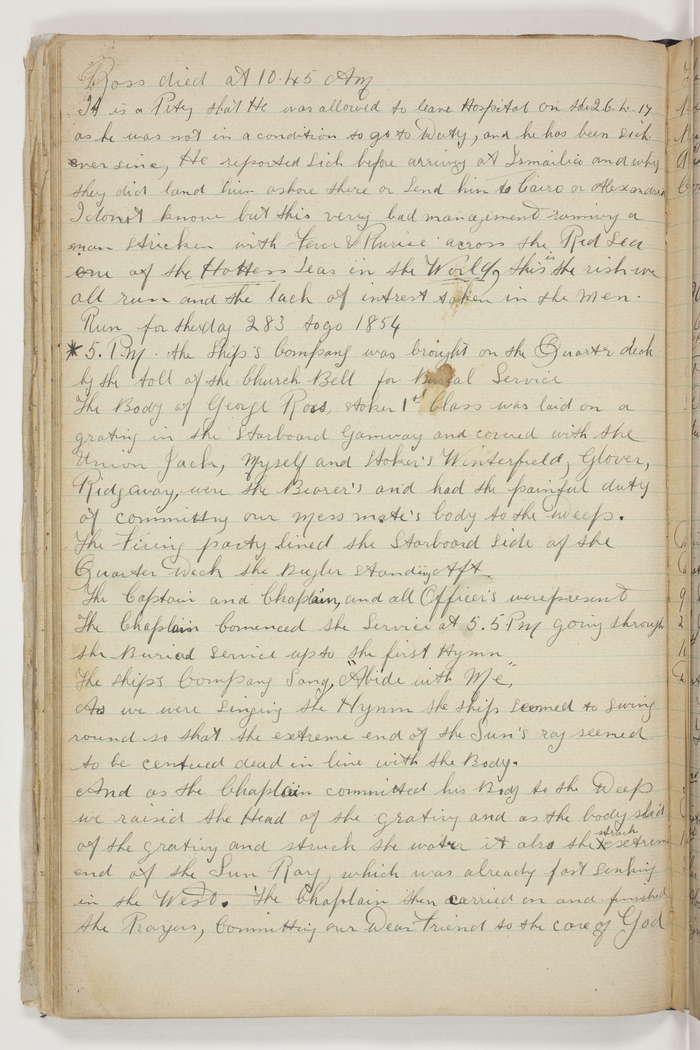 Ross died at 10.45 AM
It is a Pitey that He was allowed to leave Hospital on the 26.4.17
as he was not in a condition to go to Duty, and he has been sick
ever sinc, He reported Sick before arriving at Ismailia and why
they did land him ashore there or Send him to Cairo or Alexandria
I dont know but this very bad management running a
man stricken with Fever & Plurise across the Red Sea
one of the Hottess Seas in the World, this is the risk we
all run and the lack of intrest taken in the men.
Run for the day 283 to go 1854
* 5. P.M. the Ship's Company was brought on the Quarter deck
by the toll of the Church Bell for Burial Service
The Body of George Ross, Stoker 1st Class was laid on a
grating in the Starboard Gamway and covered with the
Union Jack, Myself and Stoker's Winterfield, Glover,
Ridgeway, were the Bearer's and had the painful duty
of committng our mess mate's body to the Deep.
The Firing party lined the Starboard Side of the
Quarter Deck the Bugler standing Aft
The Captain and Chaplain, and all Officer's were present
The Chaplain Comenced the Service at 5.5 PM going through
the Buriad Service up to the first Hymn
The ships Company Sang, "Abide with Me",
As we were singing the Hymn the ship seemed to swing
round so that the extreme end of the Sun's ray seemed
to be centued dead in line with the Body.
And as the Chaplain committed his Body to the Deep
we raisid the Head of the grating and as the body slid
of the grating and struck the water it also struck the extreme
end of the Sun Ray, which was already fast sinking
in the West. The Chaplain then carried on and finished
the Prayers, Committing our Dear Friend to the care of God